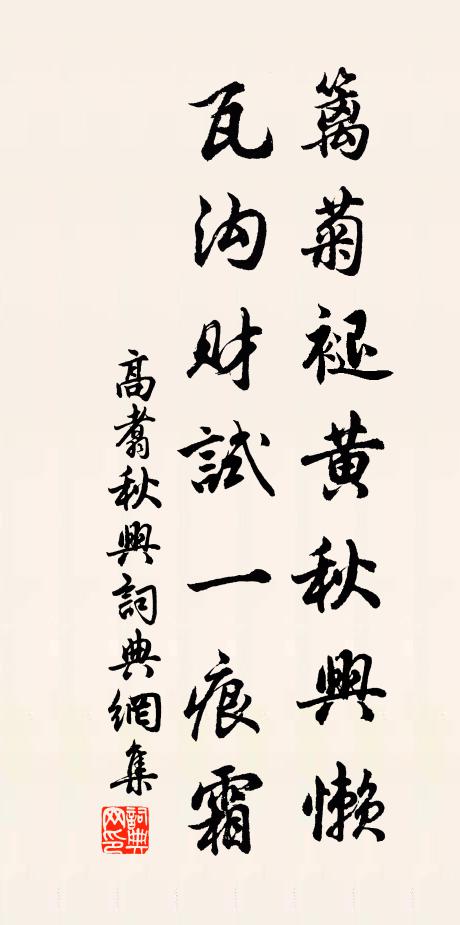 籬菊褪黄秋興懶
瓦沟財試一痕霜
高翥秋興詞典網集
詞典网印